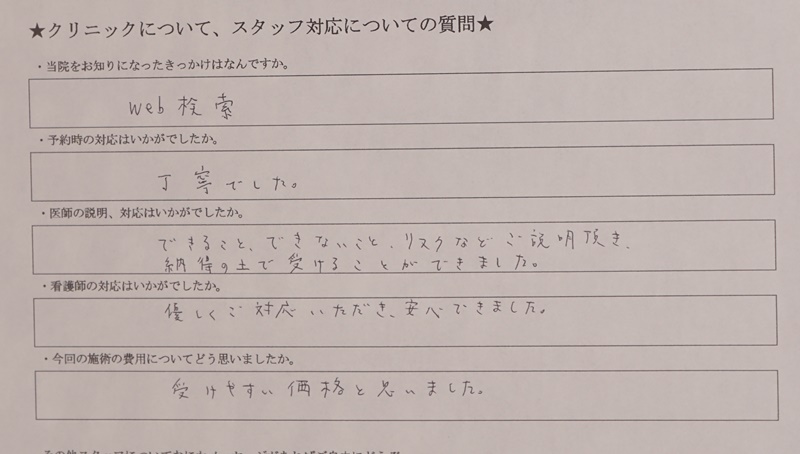 ★クリニックについて、スタッフ対応についての質問★
・当院をお知りになったきっかけはなんですか。
web 検索
・予約時の対応はいかがでしたか。
丁寧でした。
・医師の説明、対応はいかがでしたか。
できること、できないこと、リスクなどご説明頂き、
納得の上で受けることができました。
・看護師の対応はいかがでしたか。
優しくご対応いただき、安心できました。
・今回の施術の費用についてどう思いましたか。
受けやすい価格と思いました。